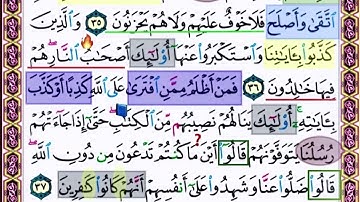 ٱتَّقَىٰ وَأَصْلَحَ فَلَا خَوْفٌ عَلَيْهِمْ وَلَا هُمْ يَحْزَنُونَ ٣٥ وَٱلَّذِينَ
كَذَّبُوا۟ بِـَٔايَـٰتِنَا وَٱسْتَكْبَرُوا۟ عَنْهَآ أُو۟لَـٰٓئِكَ أَصْحَـٰبُ ٱلنَّارِ هُمْ
فِيهَا خَـٰلِدُونَ ٣٦ فَمَنْ أَظْلَمُ مِمَّنِ ٱفْتَرَىٰ عَلَى ٱللَّهِ كَذِبًا أَوْ كَذَّبَ
بِـَٔايَـٰتِهِۦٓ أُو۟لَـٰٓئِكَ يَنَالُهُمْ نَصِيبُهُم مِّنَ ٱلْكِتَـٰبِ حَتَّىٰٓ إِذَا جَآءَتْهُمْ
رُسُلُنَا يَتَوَفَّوْنَهُمْ قَالُوٓا۟ أَيْنَ مَا كُنتُمْ تَدْعُونَ مِن دُونِ ٱللَّهِ ?
قَالُوا۟ ضَلُّوا۟ عَنَّا وَشَهِدُوا۟ عَلَىٰٓ أَنفُسِهِمْ أَنَّهُمْ كَانُوا۟ كَـٰفِرِينَ ٣٧